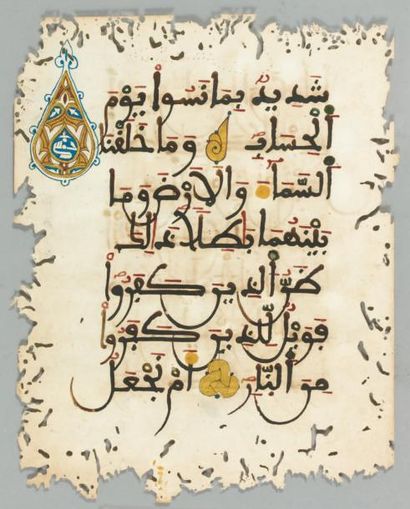 شَدِيدٌ بِمَا نَسُوا يَوْمَ
اَلْحِسَابِ وَمَا خَلَقْنَا
اَلسَّمَاءَ وَالْأَرْضَ وَمَا
بَيْنَهُمَا بَطِلًا ذَلِكَ
ظَنُّ الَّذِينَ كَفَرُوا
فَوَيْلٌ لِّلَّذِينَ كَفَرُوا
مِنَ النَّارِ أَمْ نَجْعَلُ